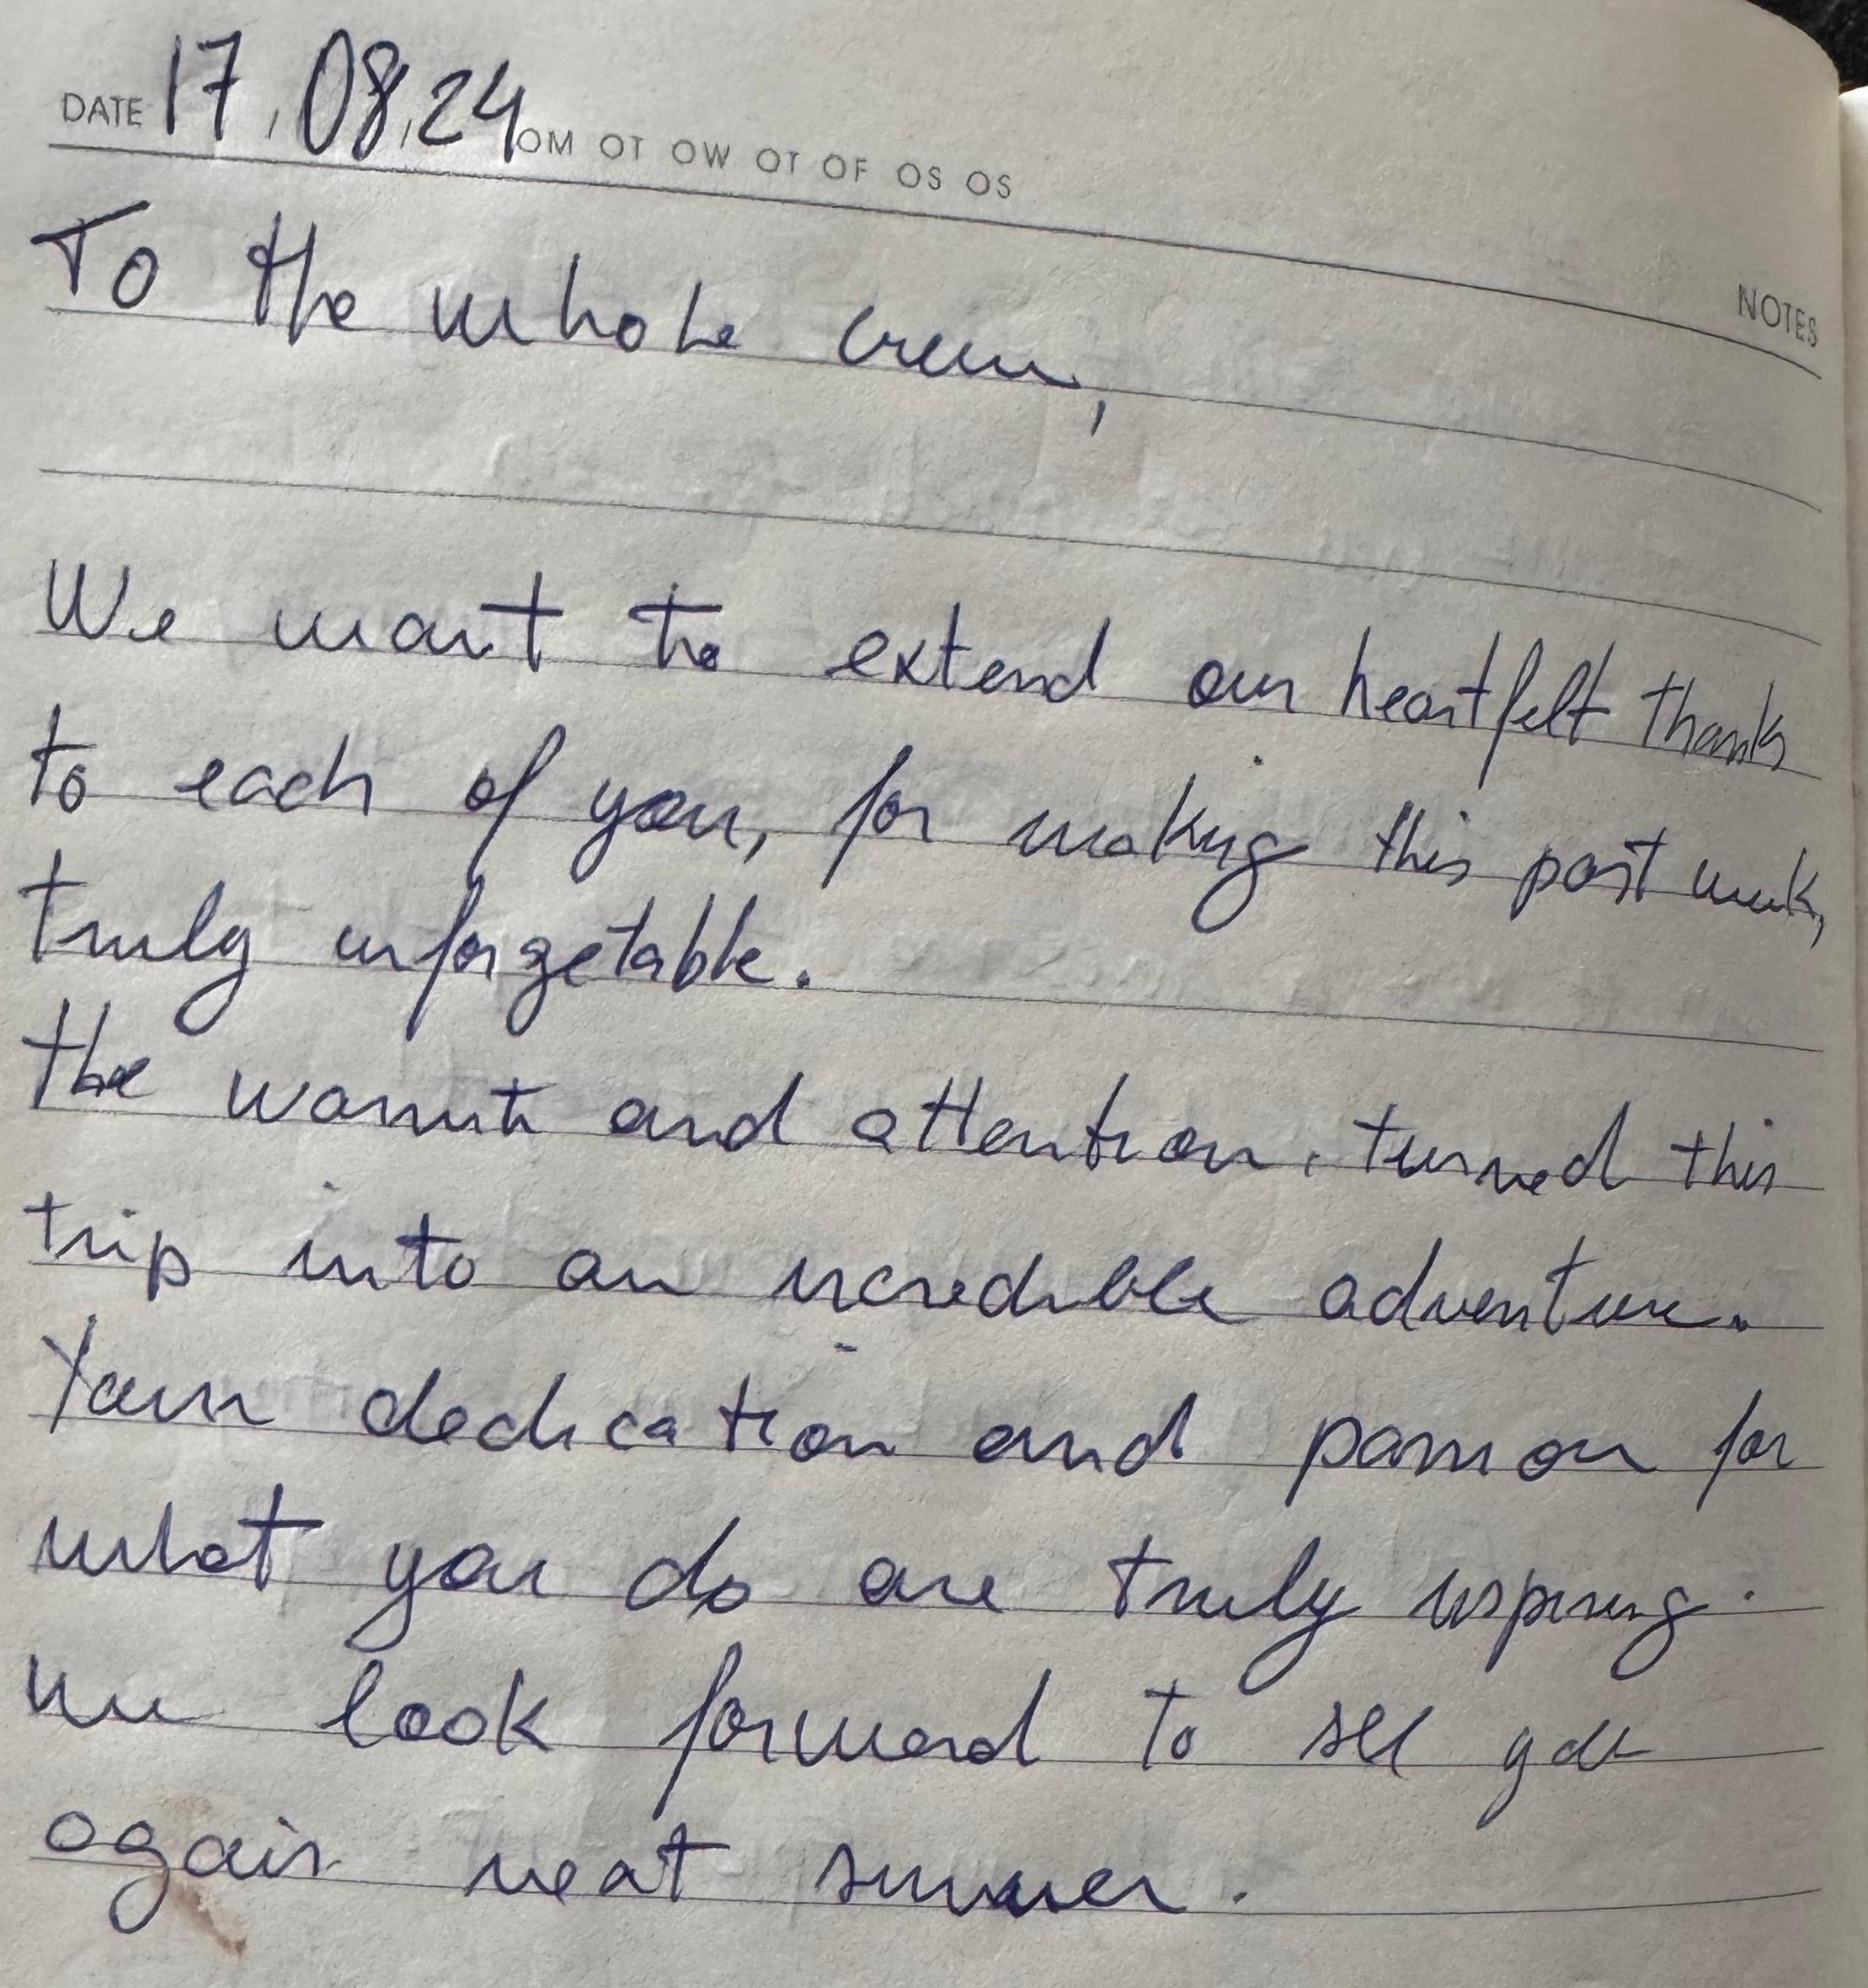 DATE 17.08.24 OM OT OW OT OF OS OS
NOTES
To the whole crew,
We want to extend our heartfelt thanks
to each of you, for making this past week,
truly unforgetable.
the warmth and attention, turned this
trip into an incredible adventure.
Your dedication and passion for
what you do are truly inspiring.
We look forward to see you
again next summer.